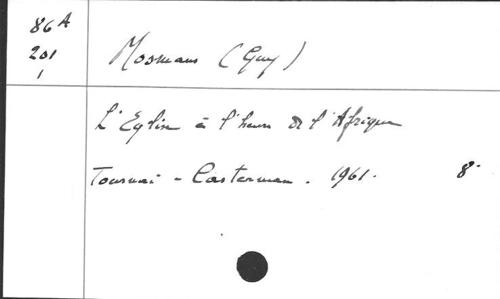 86 A
201
1
Mosmans (Guy)
L'Eglise à l'heure de l'Afrique
Tournai - Casterman. 1961. 8°